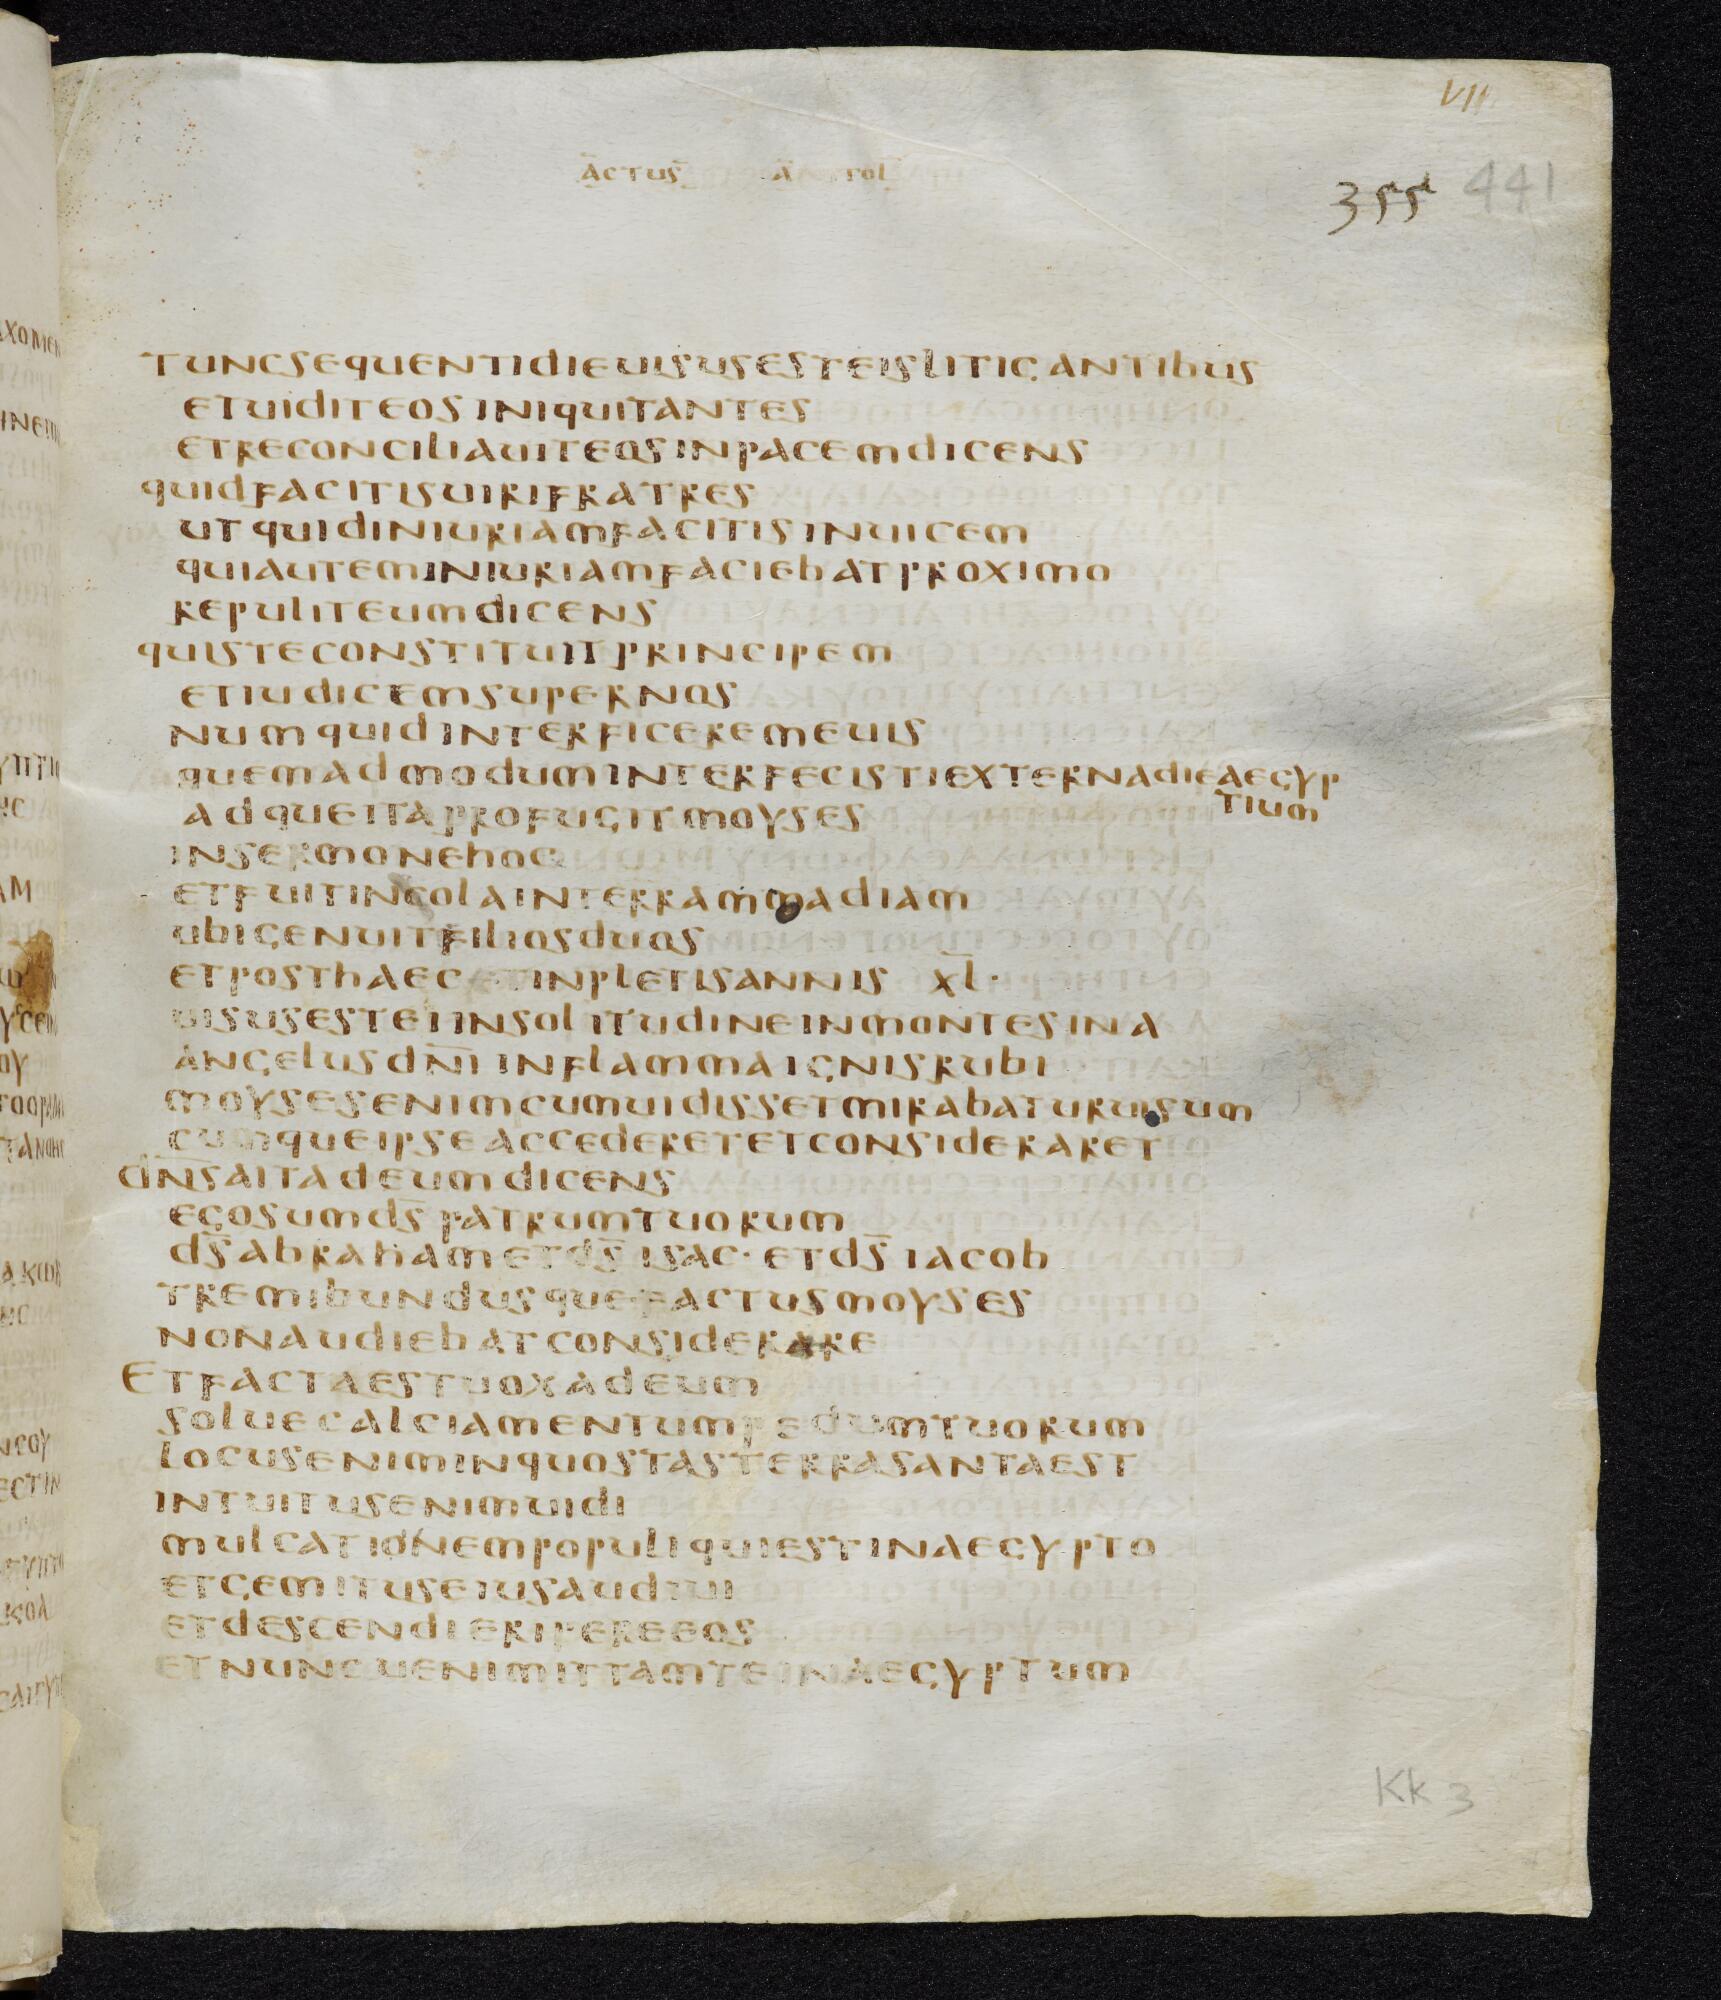 VII
ACTUS APOSTOL
355 441
TUNC SEQUENTI DIE UISUS EST EIS LITIGANTIBUS
ET UIDIT EOS INIQUITANTES
ET RECONCILIAUIT EOS IN PACEM DICENS
QUID FACITIS UIRI FRATRES
UT QUID INIURIAM FACITIS INUICEM
QUI AUTEM INIURIAM FACIEBAT PROXIMO
REPULIT EUM DICENS
QUIS TE CONSTITUIT PRINCIPEM
ET IUDICEM SUPER NOS
NUMQUID INTERFICERE ME UIS
QUEMADMODUM INTERFECISTI EXTERNA DIE AEGYP
TIUM
ADQUE ITA PROFUGIT MOYSES
IN SERMONE HOC
ET FUIT INCOLA IN TERRAM MADIAM
UBI GENUIT FILIOS DUOS
ET POST HAEC ET INPLETIS ANNIS X̅L̅·
UISUS EST EI IN SOLITUDINE IN MONTE SINA
ANGELUS DN̅I IN FLAMMA IGNIS RUBI
MOYSES ENIM CUM UIDISSET MIRABATUR UISUM
CUMQUE IPSE ACCEDERET ET CONSIDERARET
DN̅S AIT AD EUM DICENS
EGO SUM DS̅ PATRUM TUORUM
DS̅ ABRAHAM ET DS̅ ISAC· ET DS̅ IACOB
TREMIBUNDUSQUE FACTUS MOYSES
NON AUDIEBAT CONSIDERARE
ET FACTA EST UOX AD EUM
SOLUE CALCIAMENTUM PEDUM TUORUM
LOCUS ENIM IN QUO STAS TERRA SANTA EST
INTUITUS ENIM UIDI
MULCATIONEM POPULI QUI EST IN AEGYPTO
ET GEMITUS EIUS AUDIUI
ET DESCENDI ERIPERE EOS
ET NUNC UENI MITTAM TE IN AEGYPTUM
Kk 3